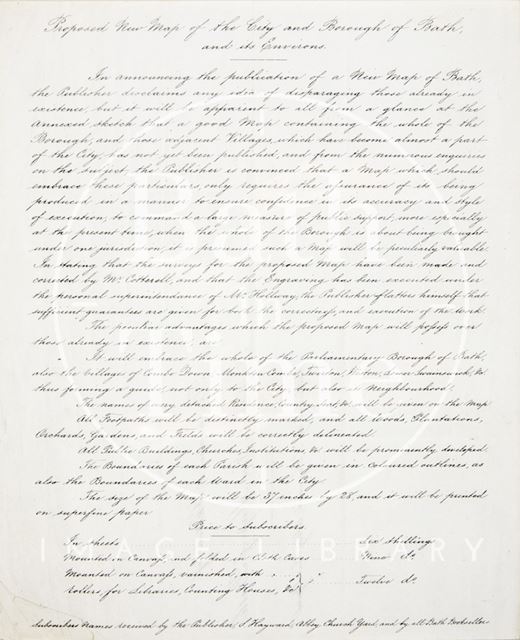 Proposed New Map of the City and Borough of Bath,
and its Environs.
In announcing the publication of a New Map of Bath,
the Publisher disclaims any idea of disparaging those already in
existence, but it will be apparent to all from a glance at the
Annexed Sketch that a good Map containing the whole of the
Borough, and those adjacent Villages, which have become almost a part
of the City, has not yet been published, and from the numerous enquiries
on the subject, the Publisher is convinced that a Map which should
embrace these particulars, only requires the assurance of its being
produced in a manner to ensure confidence in its accuracy and style
of execution, to command a large measure of public support, more especially
at the present time, when the whole of the Borough is about being brought
under one jurisdiction, it is presumed such a Map will be peculiarly valuable.
In stating that the surveys for the proposed Map have been made and
corrected by Mr. Cotterell, and that the Engraving has been executed under
the personal superintendance of Mr. Hollway, the Publisher flatters himself that
sufficient guarantees are given for both the correctness, and execution of the work.
The peculiar advantages which the proposed Map will possess over
those already in existence, are
It will embrace the whole of the Parliamentary Borough of Bath,
also the villages of Combe Down, Monkton Combe, Twerton, Weston, Swainswick, &c
thus forming a guide, not only to the City but also its Neighbourhood.
The names of any detached Residence, Country Seat, &c. will be given on the Map
All Footpaths will be distinctly marked, and all Woods, Plantations,
Orchards, Gardens, and Fields will be correctly delineated.
All Public Buildings, Churches, Institutions, &c will be prominently developed.
The Boundaries of each Parish will be given in coloured outlines, as
also the Boundaries of each Ward in the City.
The size of the Map will be 37 inches by 28, and it will be printed
on superfine paper
Price to Subscribers
In Sheets Six Shillings
Mounted in Canvass, and folded in Cloth Cases Nine do.
Mounted on Canvass, varnished, with
rollers, for Libraries, Counting Houses, &c Twelve do.
Subscribers Names received by the Publisher, S. Hayward, Abbey Church Yard, and by all Bath Booksellers
IMAGE LIBRARY